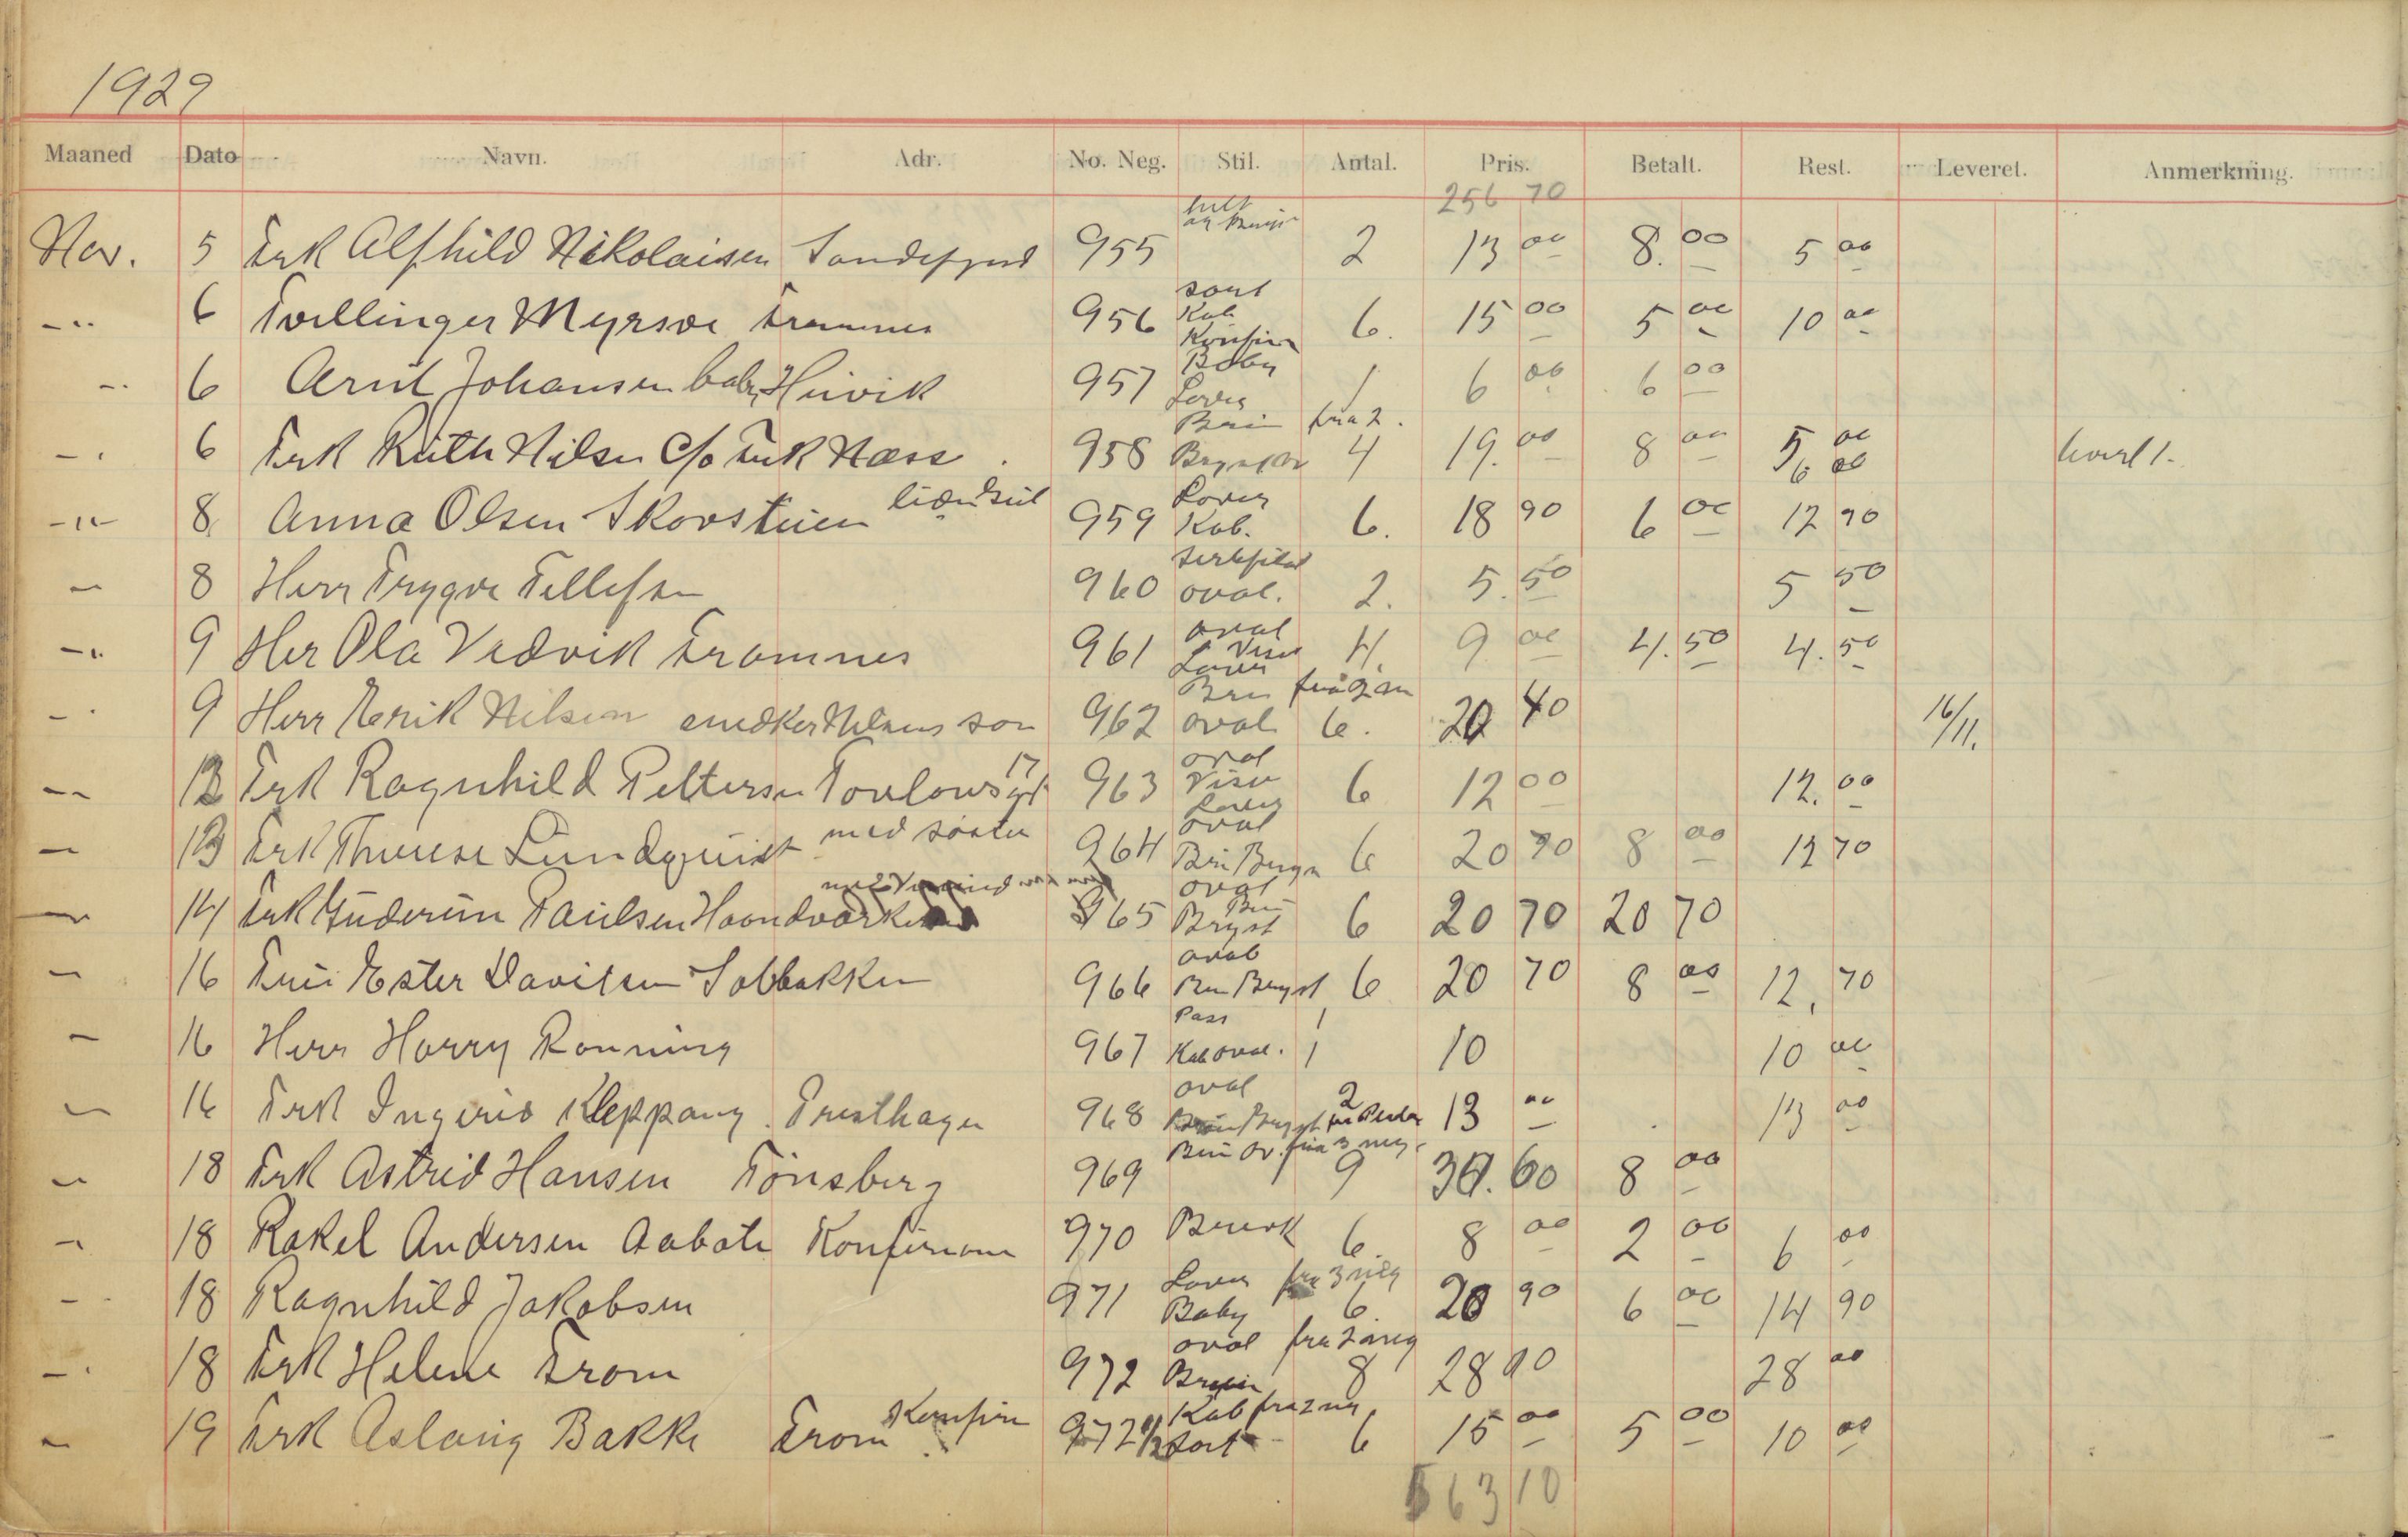 1929
Maaned Dato Navn. Adr. No. Neg. Stil. Antal. Pris. Betalt. Rest. Leveret. Anmerkning.
256 70
Nov. 5 Frk Alfhild Nikolaisen Sandefjord 955 2 13 00 8. 00 5 00
sort
6 Tvillinger Myrsve Framnes 956 Kab 6. 15 00 5 00 10 00
Konfirm
Baby
6 Arnt Johansen baby Huvik 957 Lover 1 6 00 6 00
Brun fra 2.
6 Frk Ruth Nilsen c/o Frk Næss. 958 4 19. 00 8 00 5 00 6 00 leverl 1.
Lover
8 Anna Olsen Skovstuen 959 Kab. 6. 18 90 6 00 12 90
8 Herr Trygve Tellefsen 960 oval. 2. 5. 50 5 50
oval
9 Her Ola Vedvik Framnes 961 Visit 4. 9 00 4. 50 4. 50
Lover
Brun fra 2 neg
9 Herr Henrik Nilsen snedker Nilsens søn 962 oval 6. 20 40 16/11.
oval
13 Frk Ragnhild Pettersen 17 963 Visit 6 12 00 12. 00
Lover
oval
13 Frk Therese Lundquist med søster 964 Brun Bryst 6 20 70 8 00 12 70
oval
Brun
14 Frk Guderun Paulsen 965 Bryst 6 20 70 20 70
oval
16 Frue Ester Davitsen Solbakken 966 Brun Bryst 6 20 70 8 00 12, 70
Pass 1
16 Herr Harry Rønning 967 Kab oval. 1 10 10 00
oval 2
16 Frk Ingerid Kleppang. Presthagen 968 Brun Bryst 13 00 13 00
Brun ov. fra 3 neg.
18 Frk Astrid Hansen Tönsberg 969 9 30. 60 8 00
18 Rakel Andersen Konfirmant 970 6. 8 00 2 00 6 00
Lover fra 3 neg
18 Ragnhild Jakobsen 971 Baby 6. 20 90 6 00 14 90
oval fra 2 neg
18 Frk Helene Fram 972 Brun 8 28 00 28 00
Konfirm Kab fra 2 neg.
19 Frk Aslaug Bakke Fram 972 1/2 sort 6 15 00 5 00 10 00
563 10